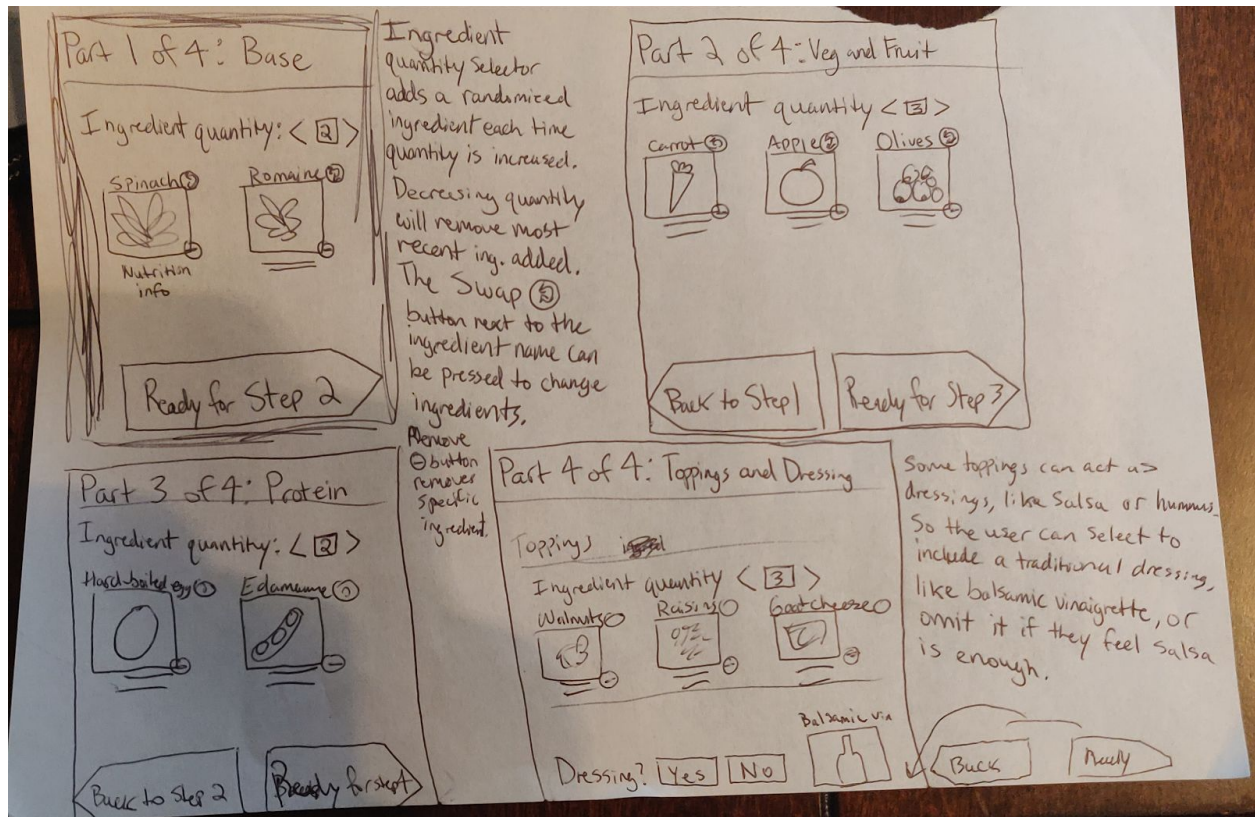 Part 1 of 4: Base
Ingredient quantity: < 2 >
Spinach
Romaine
Nutrition
info
Ready for Step 2
Ingredient
quantity selector
adds a randomized
ingredient each time
quantity is increased.
Decreasing quantity
will remove most
recent ing. added.
The Swap
button next to the
ingredient name can
be pressed to change
ingredients.
Remove
⊖ button
remover
specific
ingredient.
Part 2 of 4: Veg and Fruit
Ingredient quantity < 3 >
Carrot
Apple
Olives
Back to Step 1
Ready for Step 3
Part 3 of 4: Protein
Ingredient quantity: < 2 >
Hard-boiled egg
Edamame
Back to Step 2
Ready for step
Part 4 of 4: Toppings and Dressing
Toppings
Ingredient quantity < 3 >
Walnuts
Raisins
Goat cheese
Dressing? Yes No
Balsamic vin
Some toppings can act as
dressings, like Salsa or hummus.
So the user can select to
include a traditional dressing,
like balsamic vinaigrette, or
omit it if they feel salsa
is enough.
Back
Ready